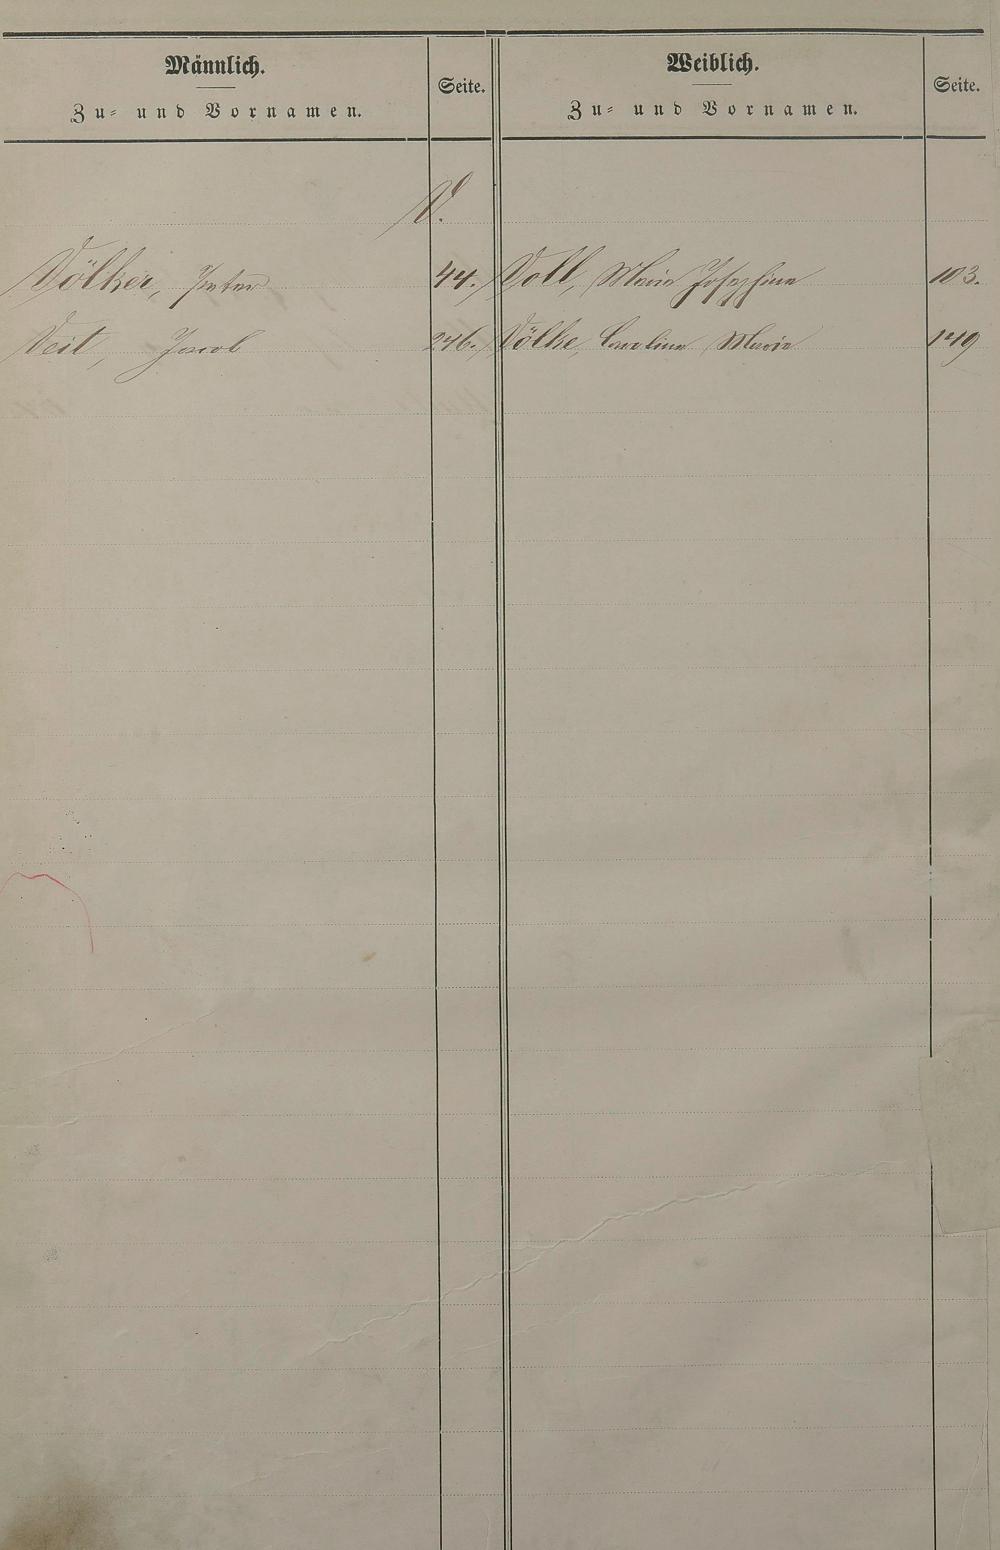 Männlich.
Zu- und Vornamen.
Seite.
Weiblich.
Zu- und Vornamen.
Seite.
V.
Völker, Peter 44. Voll, Marie Josephine 103.
Veit, Jacob 246. Völke, Caroline Marie 149